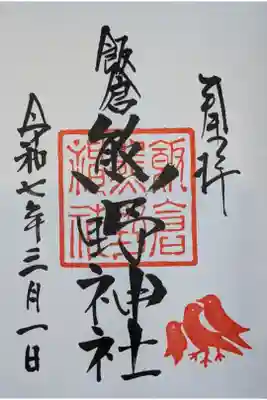 奉拝
飯倉
熊野神社
飯倉熊野神社
令和七年三月一日